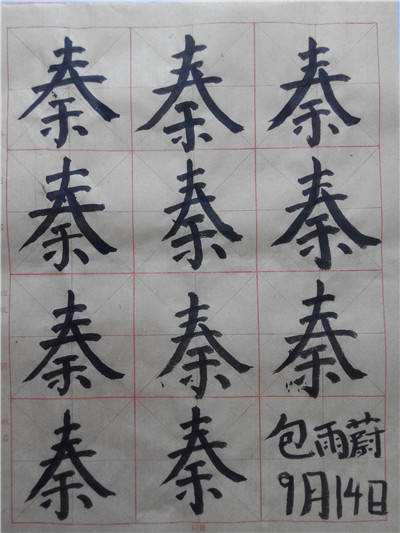 秦秦秦
秦秦秦
秦秦秦
秦秦包雨蔚
9月14日